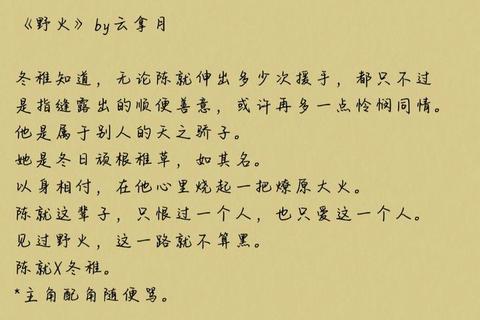 《野火》by云拿月
冬稚知道，无论陈就伸出多少次援手，都只不过
是指缝露出的顺便善意，或许再多一点怜悯同情。
他是属于别人的天之骄子。
她是冬日顽根稚草，如其名。
以身相付，在他心里烧起一把燎原大火。
陈就这辈子，只恨过一个人，也只爱这一个人。
见过野火，这一路就不算黑。
陈就X冬稚。
*主角配角随便骂。